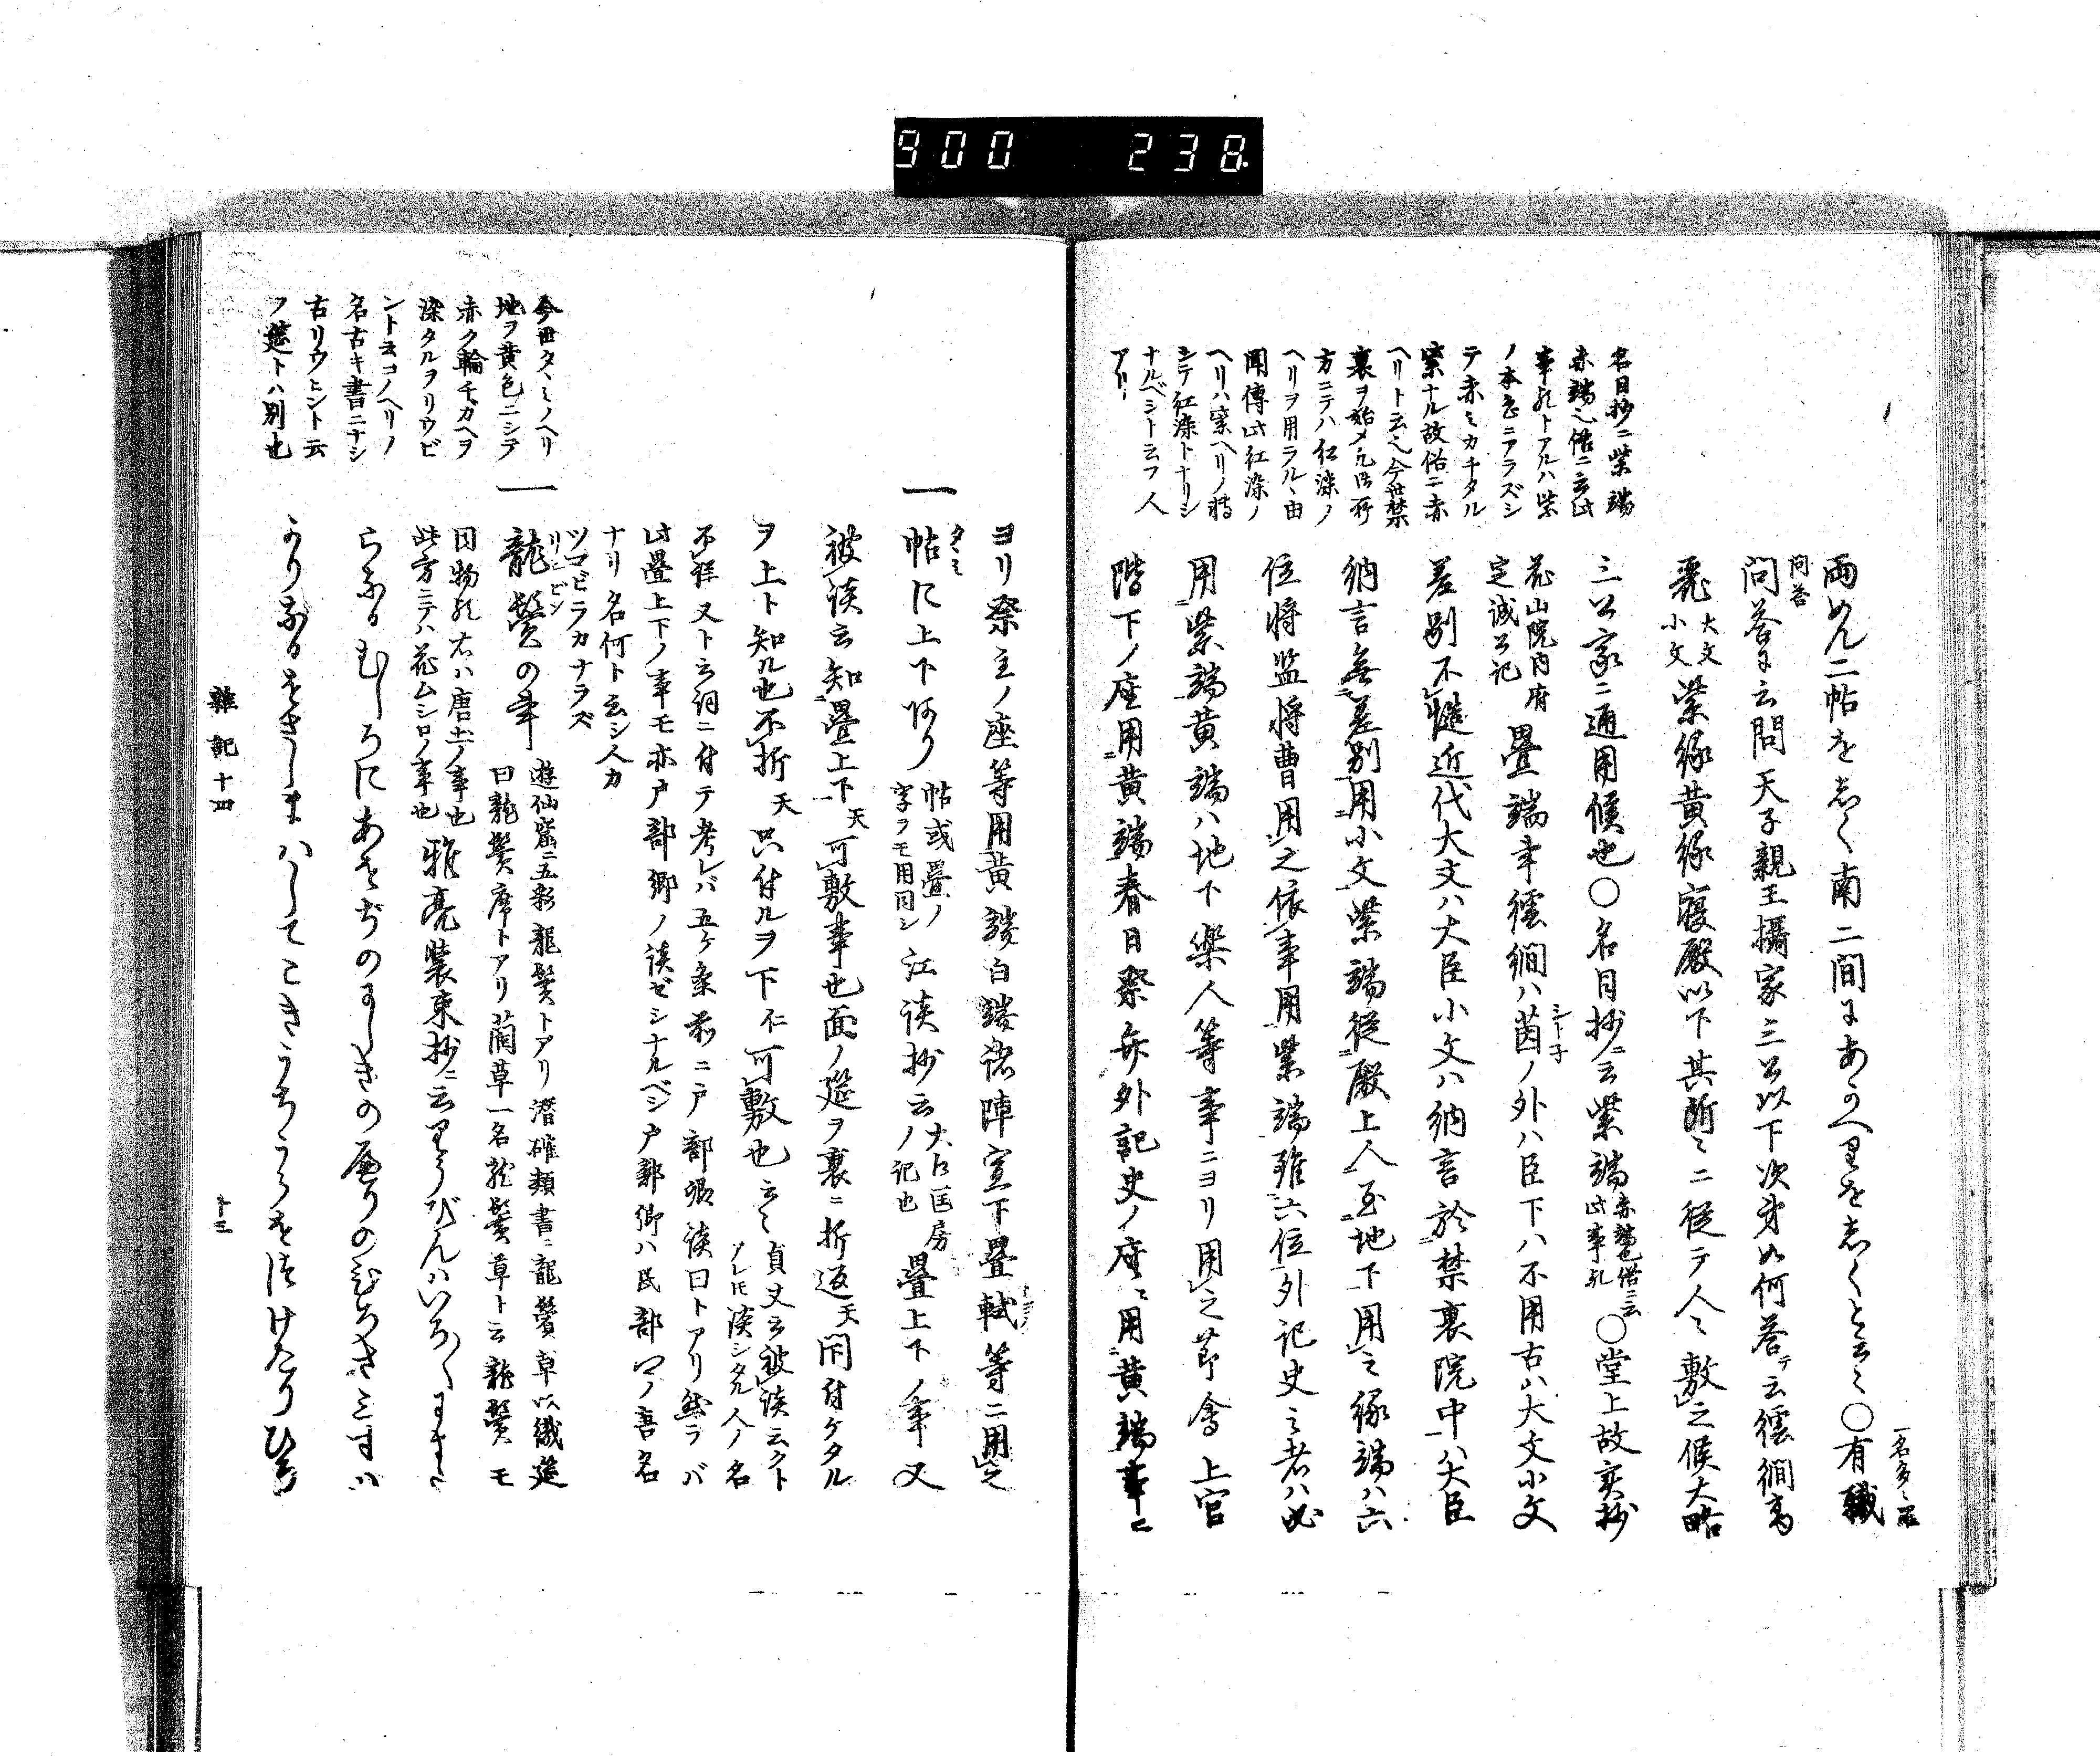 900 238
名目抄ニ紫端
赤端也俗ニ云此
事非トアルハ紫
ノ本色ニアラズシ
テ赤ミカチタル
紫ナル故俗ニ赤
ヘリト云也今世禁
裏ヲ始メ凡御所
方ニテハ紅染ノ
ヘリヲ用ラルヽ由
聞傳此紅染ノ
ヘリハ紫ヘリノ轉
シテ紅染トナリシ
ナルベシト云フ人
アリ
両めん二帖をしく南二間にあつへりをしくと云々〇有職
問答
問答に云問天子親王攝家三公以下次第如何答テ云繧繝高
麗大文小文紫縁黄縁寝殿以下其所々ニ従テ人々敷之候大略
三公家ニ通用候也〇名目抄ニ云紫端赤端也俗ニ云此事非〇堂上故実抄
花山院内府定誠公記疊端事繧繝ハ茵ノ外ハ臣下ハ不用古ハ大文小文
シトネ
差別不慥近代大文ハ大臣小文ハ納言於禁裏院中ハ大臣
納言無差別用小文紫端從殿上人至地下用之縁端ハ六
位将監将曹用之依事用紫端雖六位外記史之者ハ必
用紫端黄端ハ地下楽人等事ニヨリ用之節會上官
階下ノ座用黄端春日祭弁外記史ノ座ニ用黄端事ニ
ヨリ祭主ノ座等用黄端白端諸陣宣下疊軾等ニ用之
一
タヽミ
帖に上下阿り帖或疊ノ字ヲモ用同シ江談抄云大江匡房ノ記也疊上下ノ事又
被談云知疊上下天可敷事也面ノ筵ヲ裏ニ折返天閇付ケタル
ヲ上ト知ル也不折天只付ルヲ下仁可敷也云々貞丈云被談云クト
ソレモ談シタル人ノ名
不詳又ト云詞ニ付テ考レバ五ケ条前ニ戸部卿談曰トアリ然ラバ
此疊上下ノ事モ亦戸部卿ノ談ゼシナルベシ戸部卿ハ民部卿ノ唐名
ナリ名何ト云シ人カ
ツマビラカナラズ
一
リウビン
龍鬢の事遊仙窟ニ五彩龍鬢トアリ潜確類書ニ龍鬢草以織筵
曰龍鬢席トアリ藺草一名龍鬢草ト云龍鬢モ
同物非右ハ唐土ノ事也
此方ニテハ花ムシロノ事也雅亮装束抄ニ云りうびんハいろ〱にま
らなるむしろにあをぢのにしきのへりのひろさ三寸ハ
よりなるをさしまハしてこきうちうらをつけたりひろ
今世タヽミノヘリ
地ヲ黄色ニシテ
赤ク輪チガヘヲ
染タルヲリウビ
ント云コノヘリノ
名古キ書ニナシ
古リウヒント云
フ筵トハ別也
雜記十四
十三